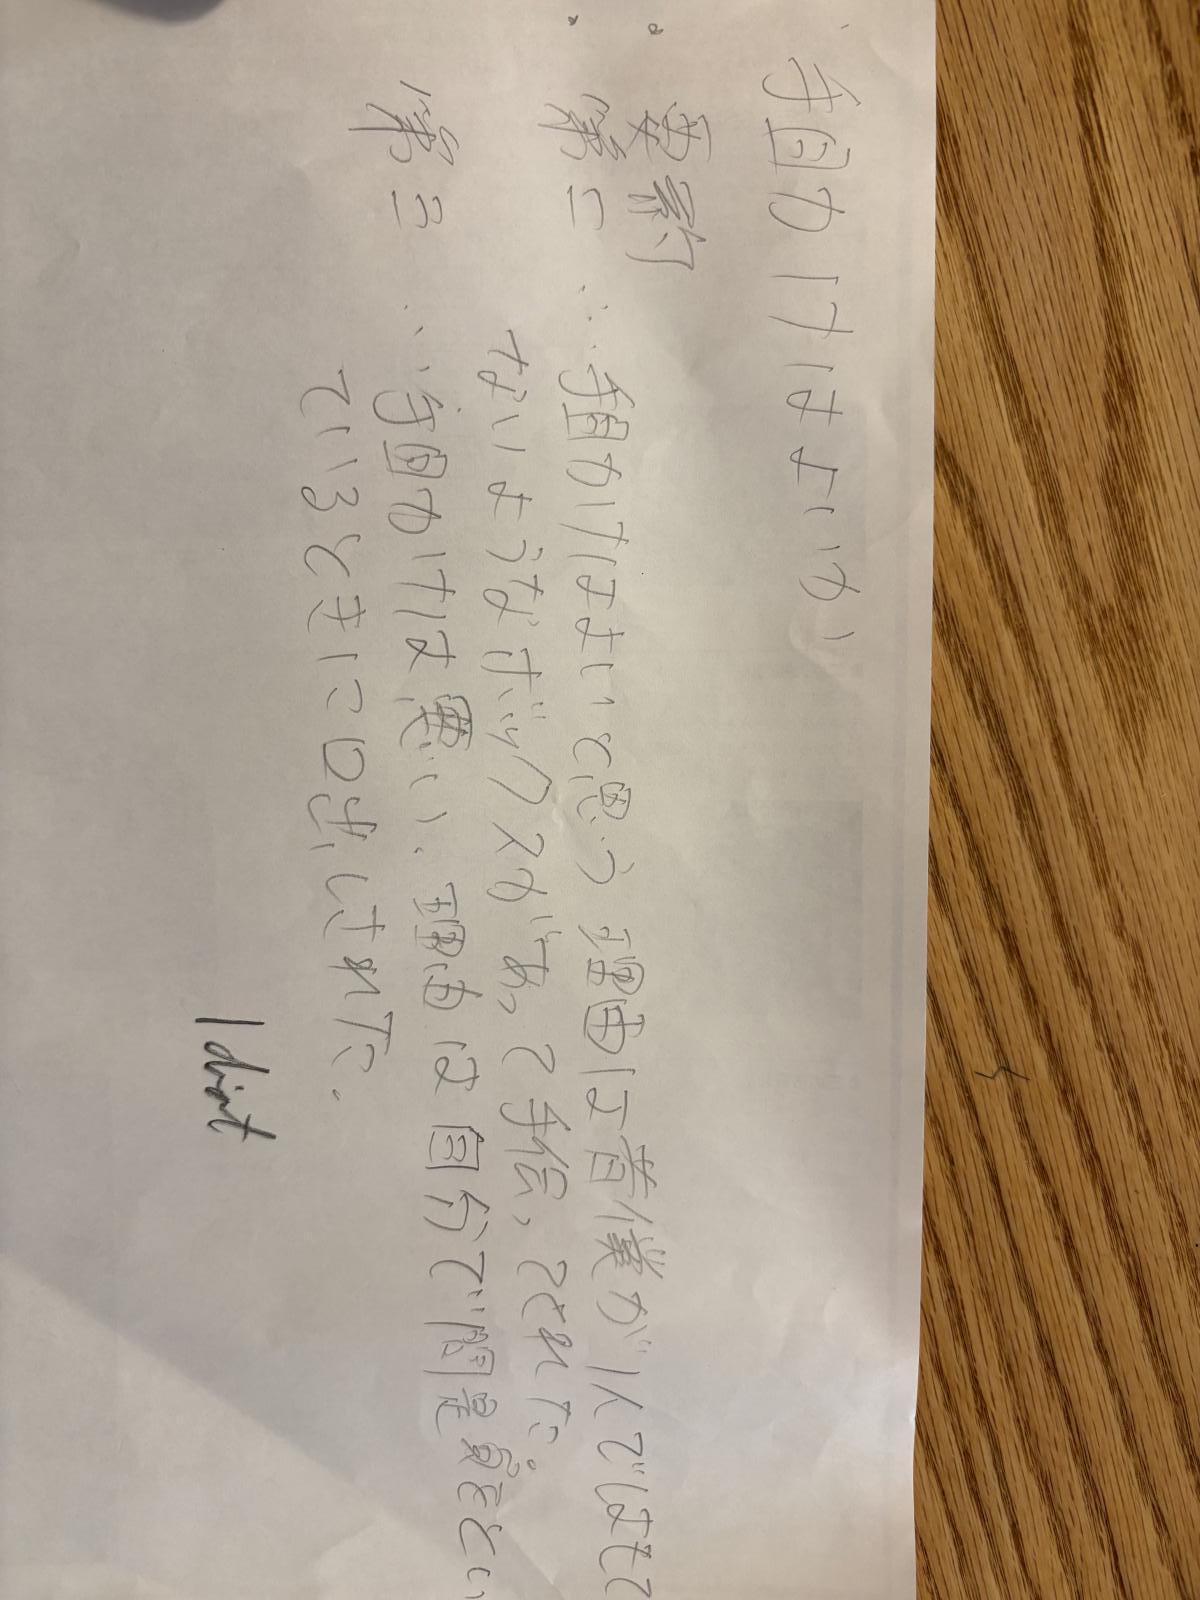 手自かけはよいか
要約
第二 … 手自かけはよいと思う 理由は昔僕が1人ではもて
ないようなボックスがあって手伝ってくれた。
第三 … 手自かけは悪い、理由は自分で問題をとい
ているときに口出しされた.
1 dint